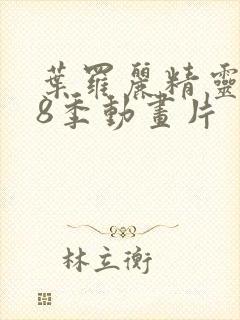 葉羅麗精靈
8季動畫片
林立衡